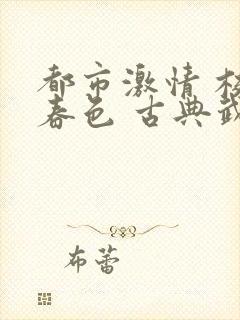 都市激情 校
春色 古典武
布蕾